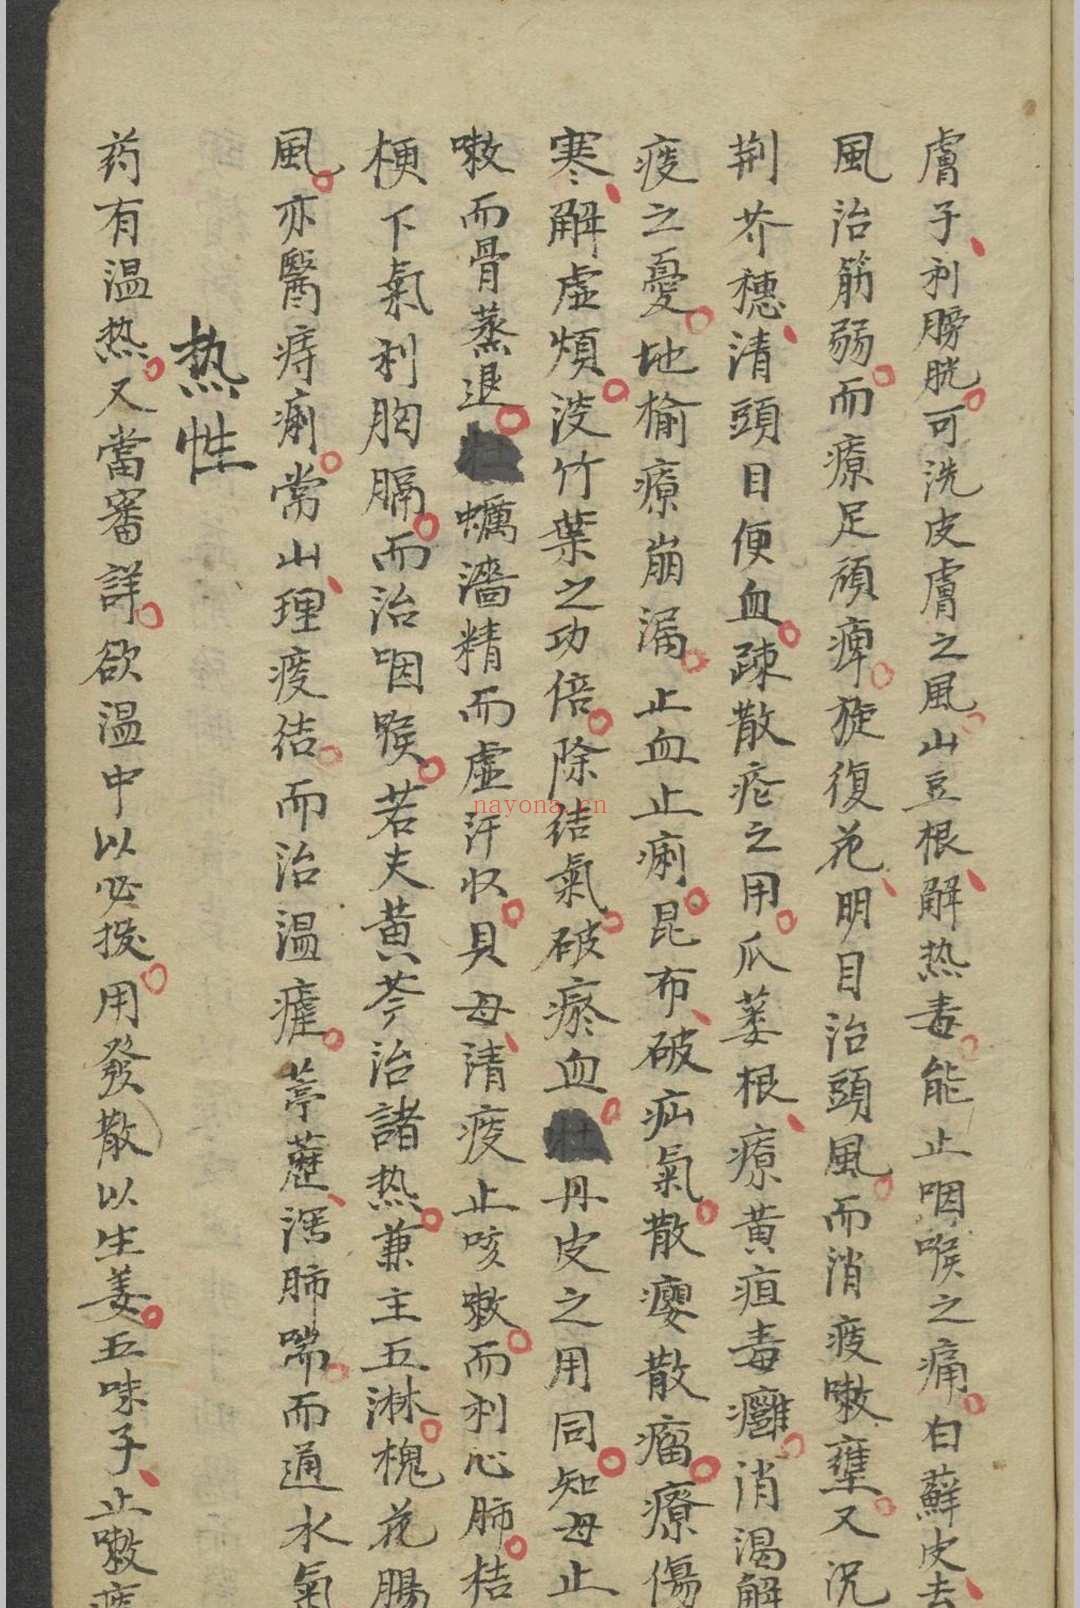 膚子利膀胱可洗皮膚之風山豆根解热毒能止咽喉之痛白蘚皮去
風治筋弱而療足頑痺旋復花明目治頭風而消痰嗽壅又況
荆芥穗清頭目便血疎散疮之用瓜蒌根療黄疸毒癰消渴解
痰之憂地榆療崩漏止血止痢昆布破疝氣散癭散瘤療傷
寒解虛煩淡竹葉之功倍除结氣破瘀血牡丹皮之用同知母止
嗽而骨蒸退牡蠣澀精而虛汗収貝母清痰止咳嗽而利心肺桔
梗下氣利胸膈而治咽喉若夫黄芩治諸热兼主五淋槐花腸
風亦醫痔痢常山理痰结而治温瘧葶藶瀉肺喘而通水氣
热性
药有温热又當審詳欲温中以必扱用發散以生姜五味子止嗽痰
nayona.cn